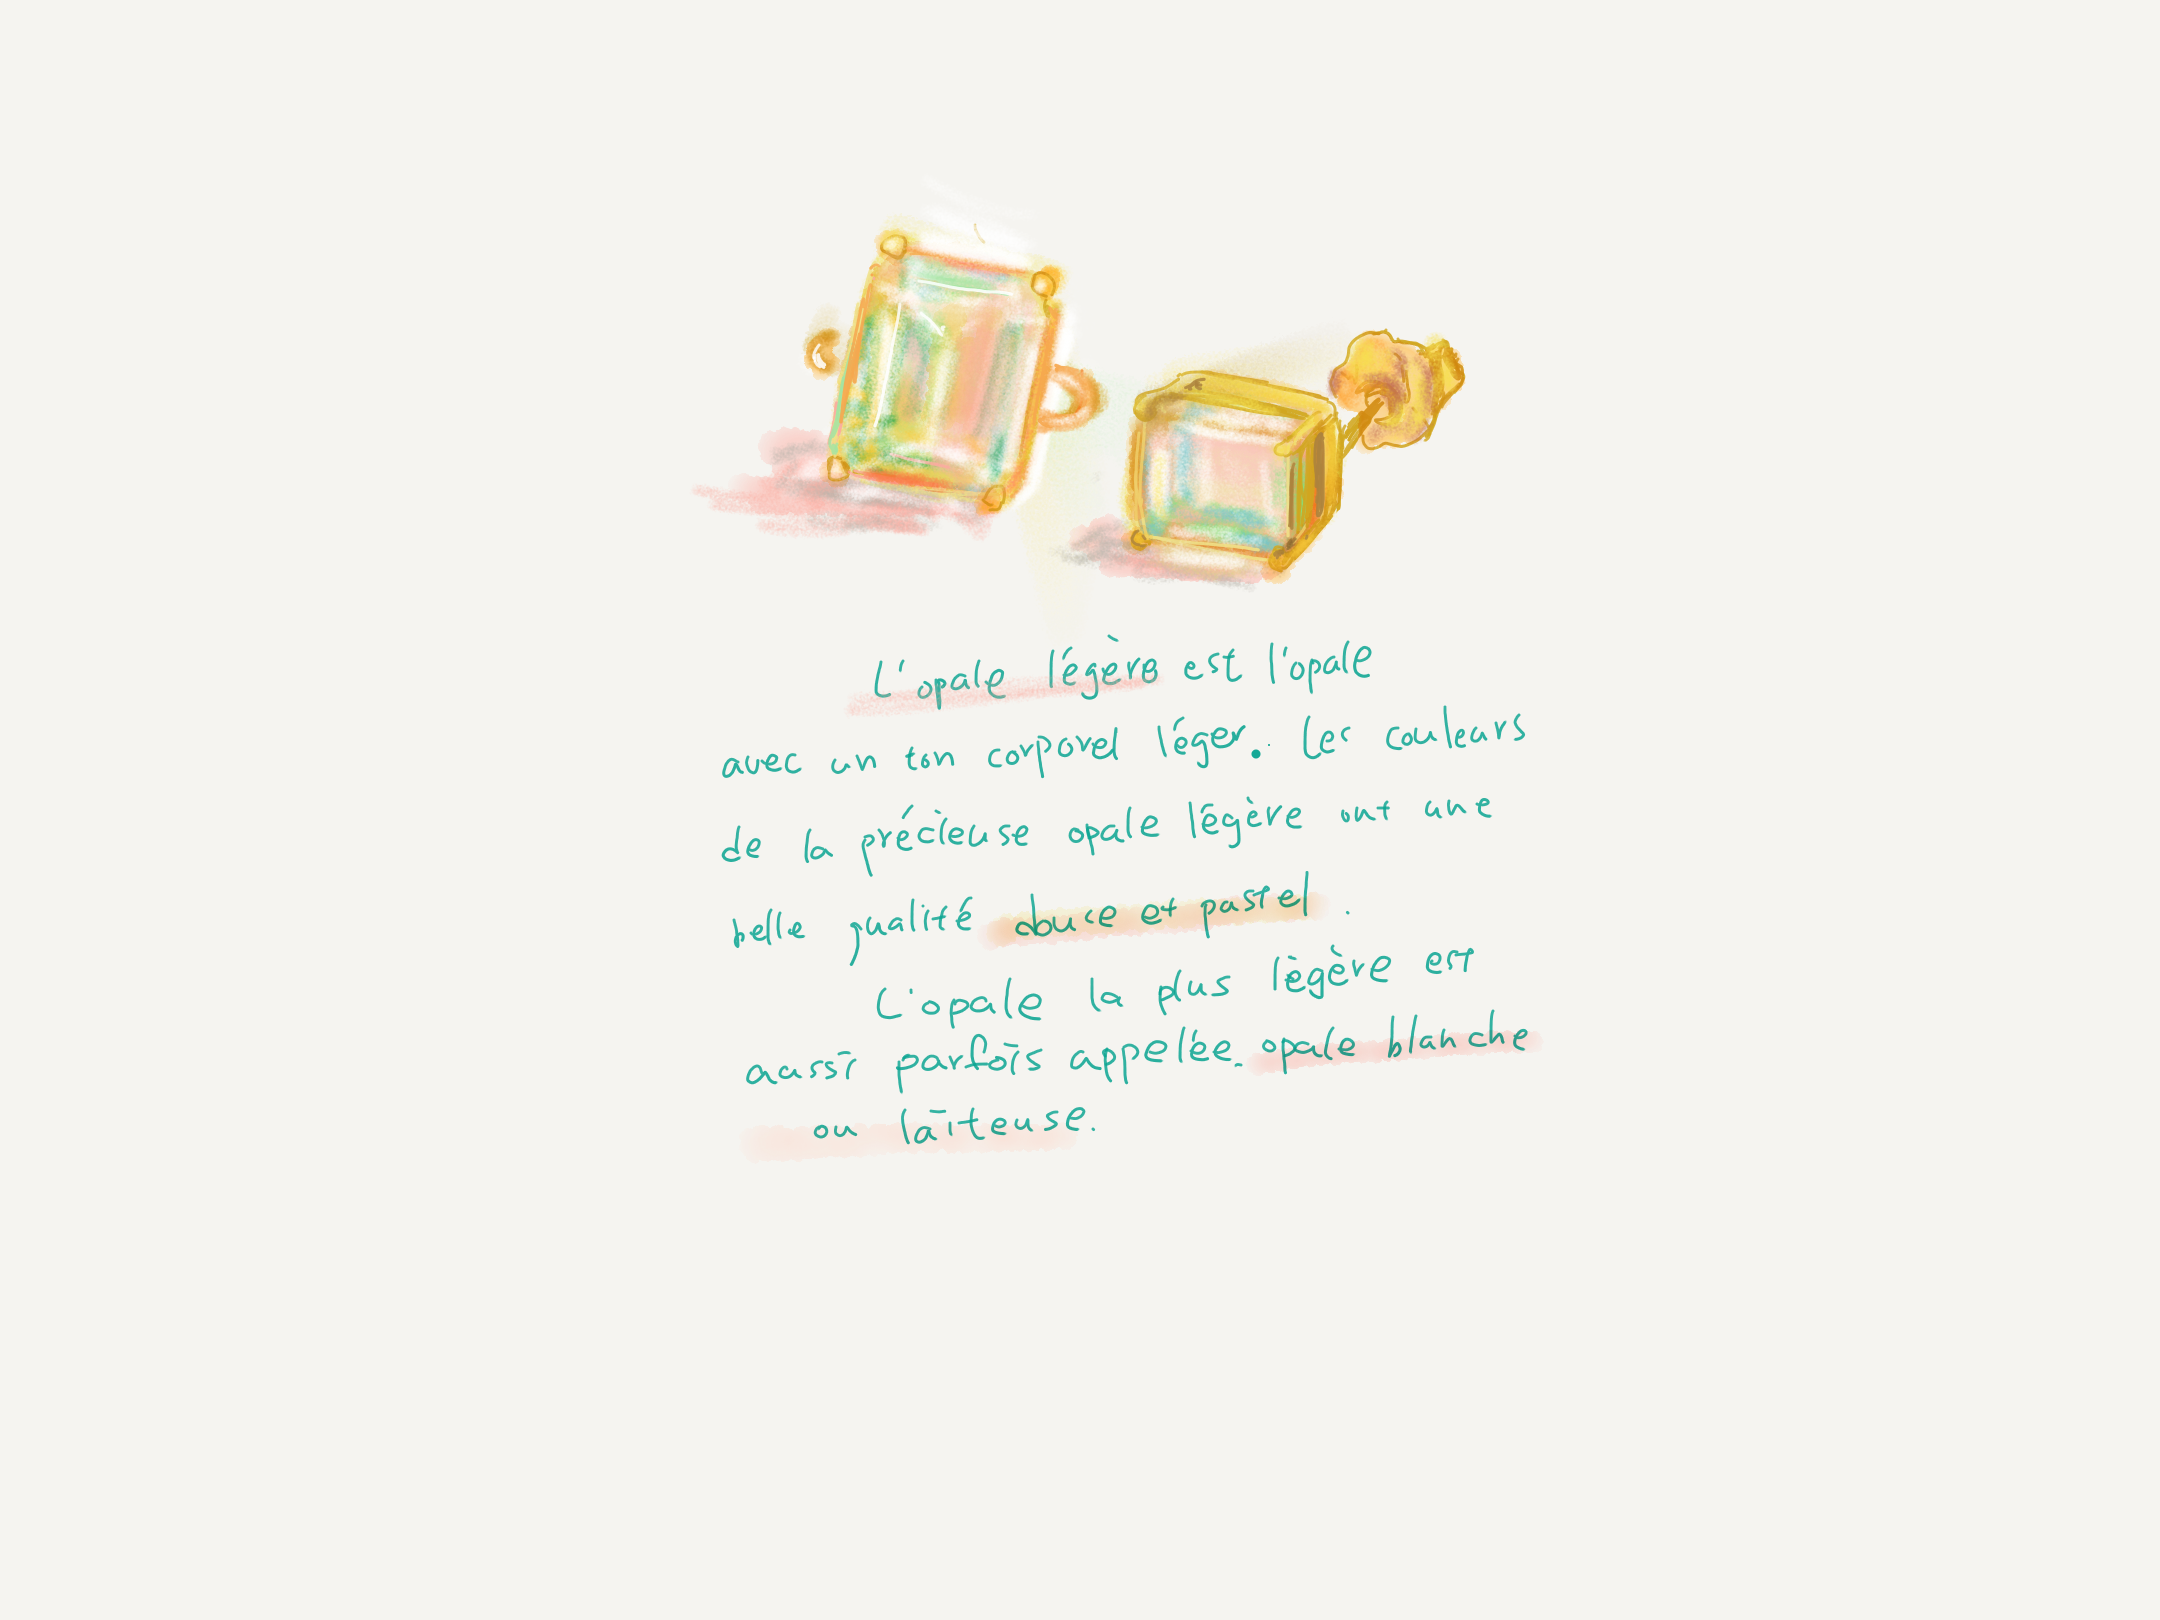 L'opale légère est l'opale
avec un ton corporel léger. Les couleurs
de la précieuse opale légère ont une
belle qualité douce et pastel.
L'opale la plus lègère est
aussi parfois appelée opale blanche
ou laiteuse.